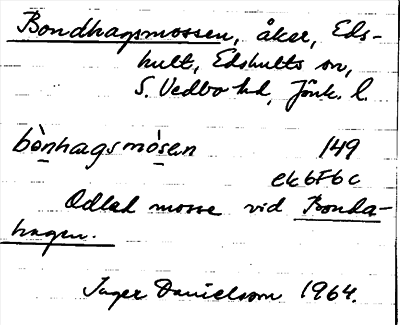 Bondhagsmossen, åker, Eds-
hult, Edshults sn,
S. Vedbo hd, Jönk. l.
bònhagsmòsen 149
ek6F6c
Odlad mosse vid Bonda-
hagen.
Inger Danielsson 1964.